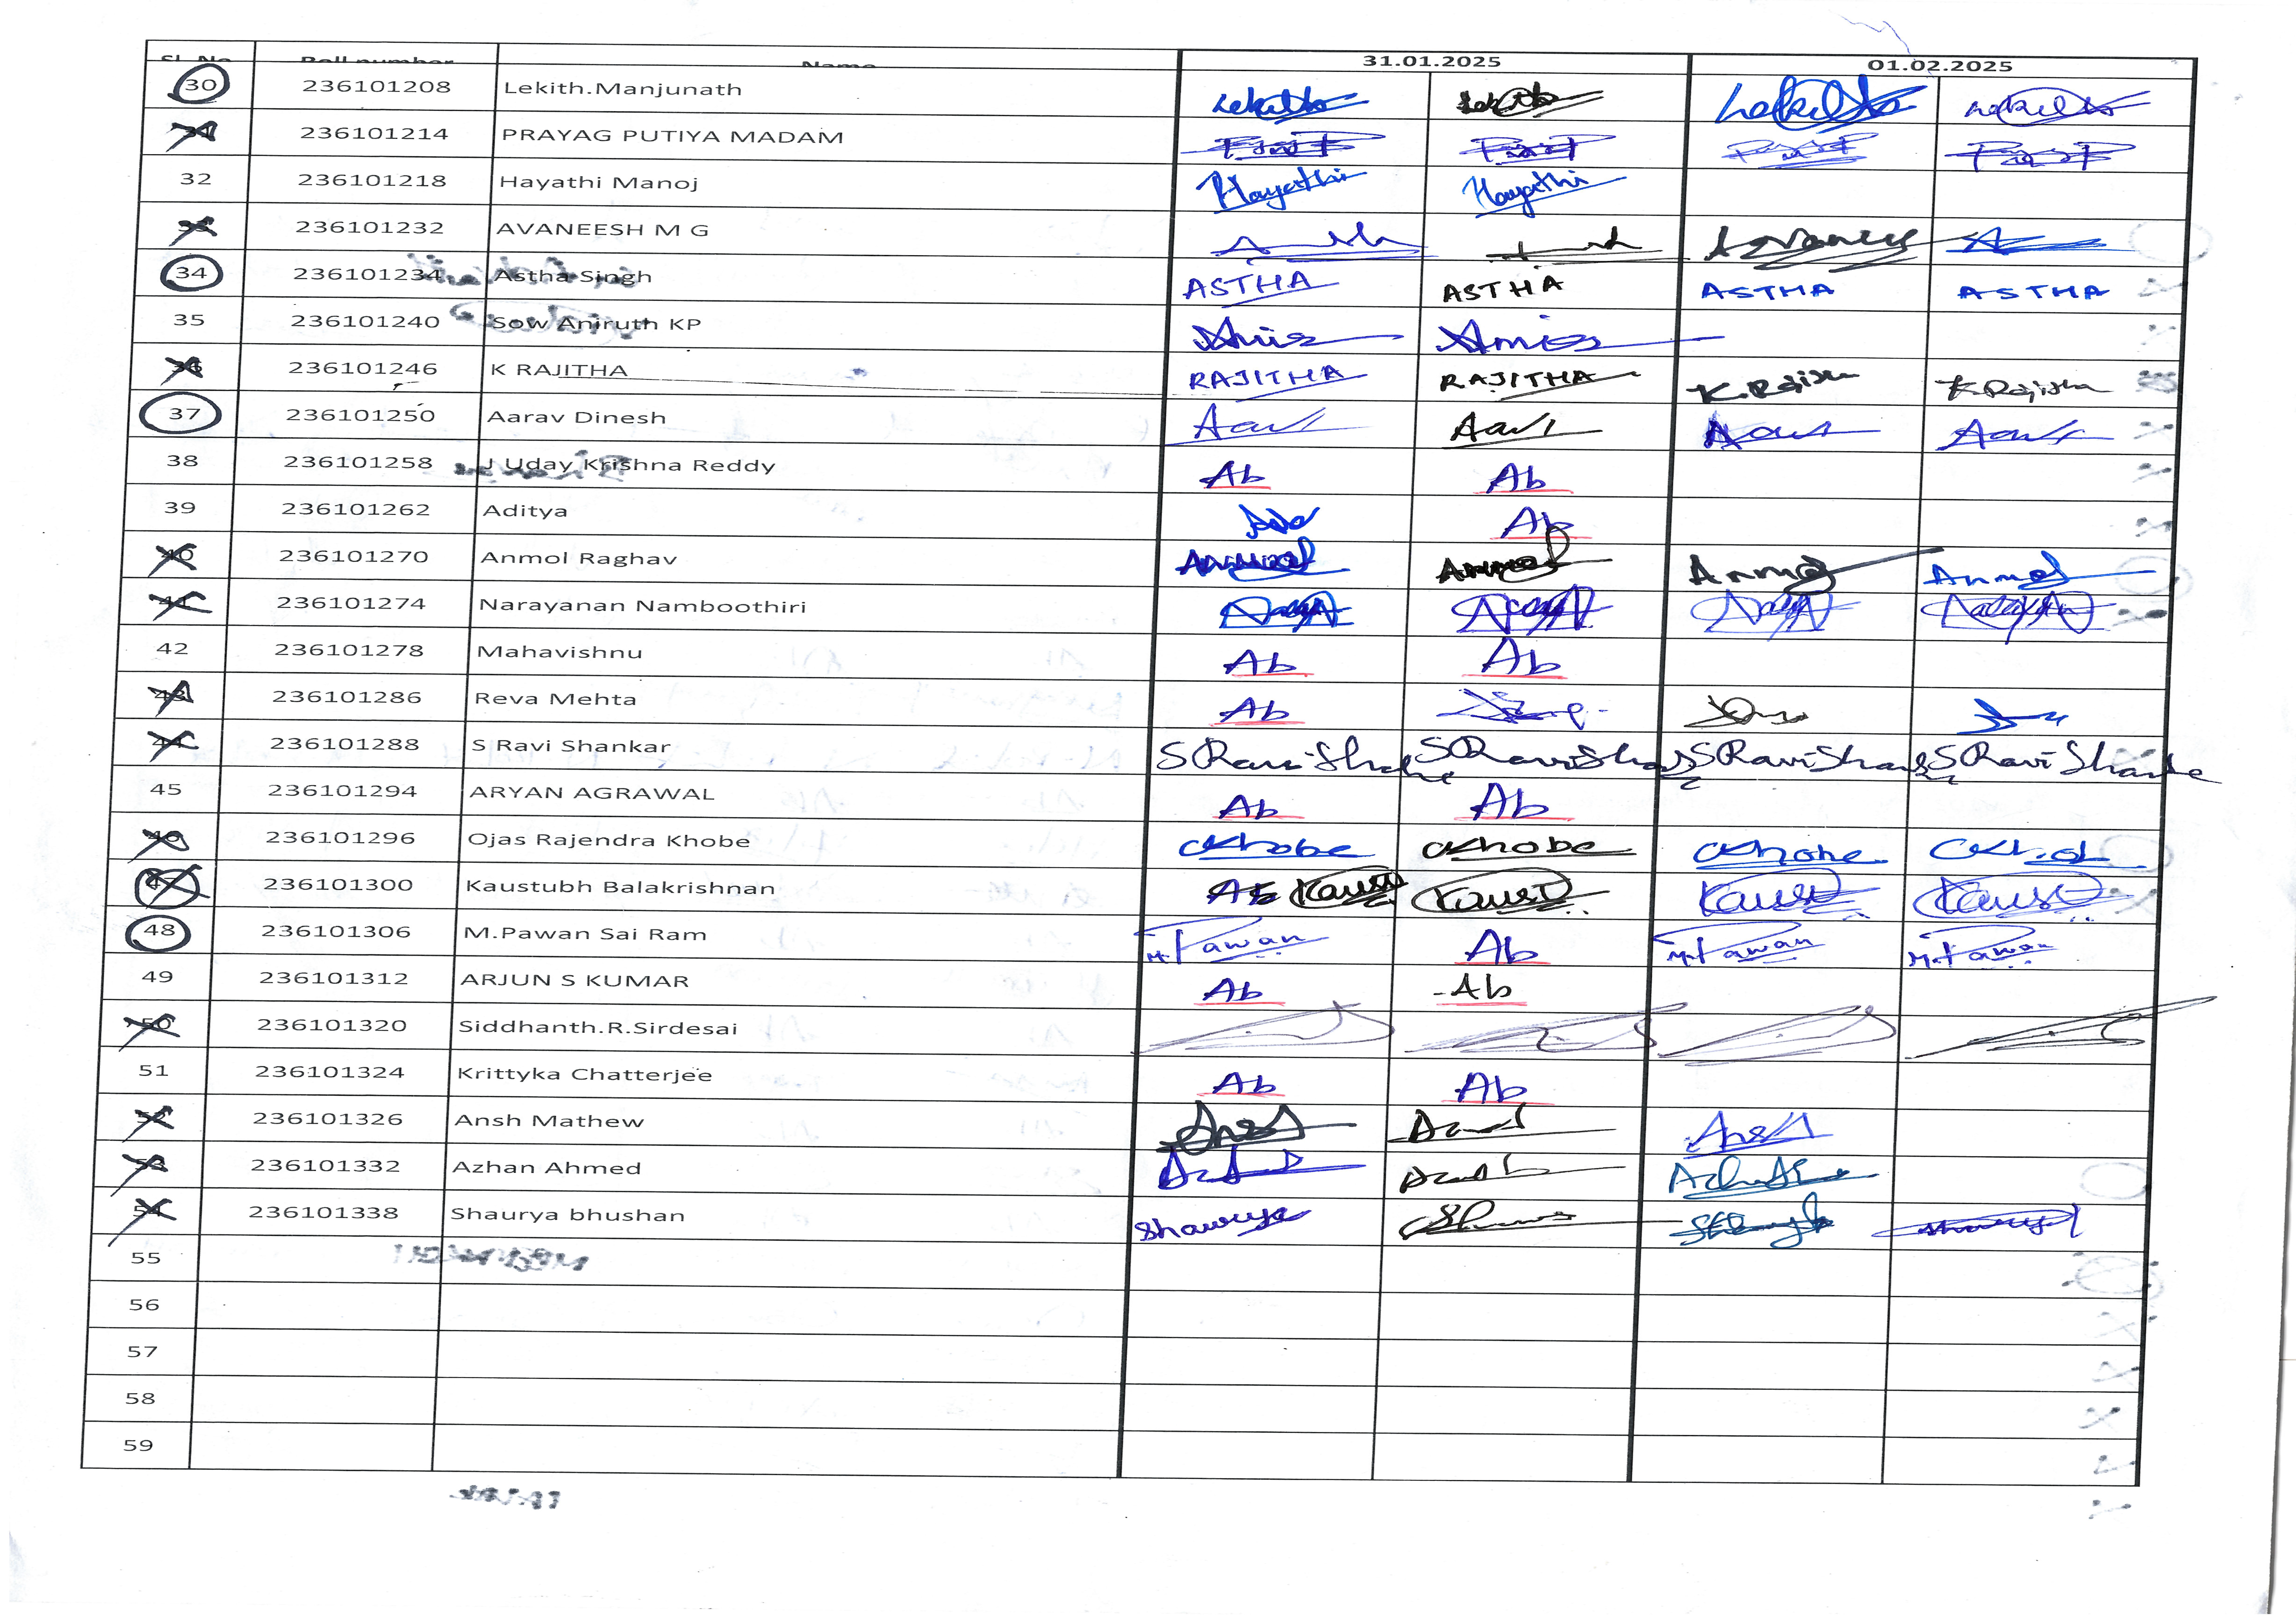 Sl. No Roll number Name 31.01.2025 01.02.2025
30 236101208 Lekith.Manjunath
31 236101214 PRAYAG PUTIYA MADAM
32 236101218 Hayathi Manoj Hayathi Hayathi
33 236101232 AVANEESH M G
34 236101234 Astha Singh ASTHA ASTHA ASTHA ASTHA
35 236101240 Sow Aniruth KP
36 236101246 K RAJITHA RAJITHA RAJITHA K.Rajitha K.Rajitha
37 236101250 Aarav Dinesh
38 236101258 J Uday Krishna Reddy Ab Ab
39 236101262 Aditya Ab
40 236101270 Anmol Raghav Anmol Anmol Anmol Anmol
41 236101274 Narayanan Namboothiri
42 236101278 Mahavishnu Ab Ab
43 236101286 Reva Mehta Ab
44 236101288 S Ravi Shankar S Ravi Shanke S Ravi Shanke S Ravi Shanke S Ravi Shanke
45 236101294 ARYAN AGRAWAL Ab Ab
46 236101296 Ojas Rajendra Khobe OKhobe OKhobe OKhobe
47 236101300 Kaustubh Balakrishnan Ab
48 236101306 M.Pawan Sai Ram M.Pawan Ab M.Pawan M.Pawan
49 236101312 ARJUN S KUMAR Ab Ab
50 236101320 Siddhanth.R.Sirdesai
51 236101324 Krittyka Chatterjee Ab Ab
52 236101326 Ansh Mathew
53 236101332 Azhan Ahmed
54 236101338 Shaurya bhushan Shaurya
55
56
57
58
59